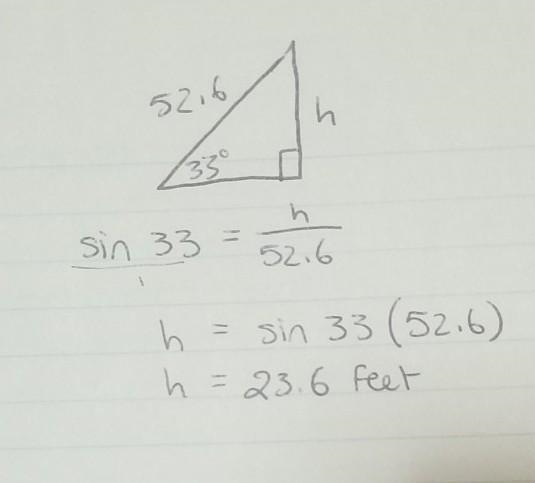 52.6
h
33°
sin 33 = h / 52.6
1
h = sin 33 (52.6)
h = 23.6 feet